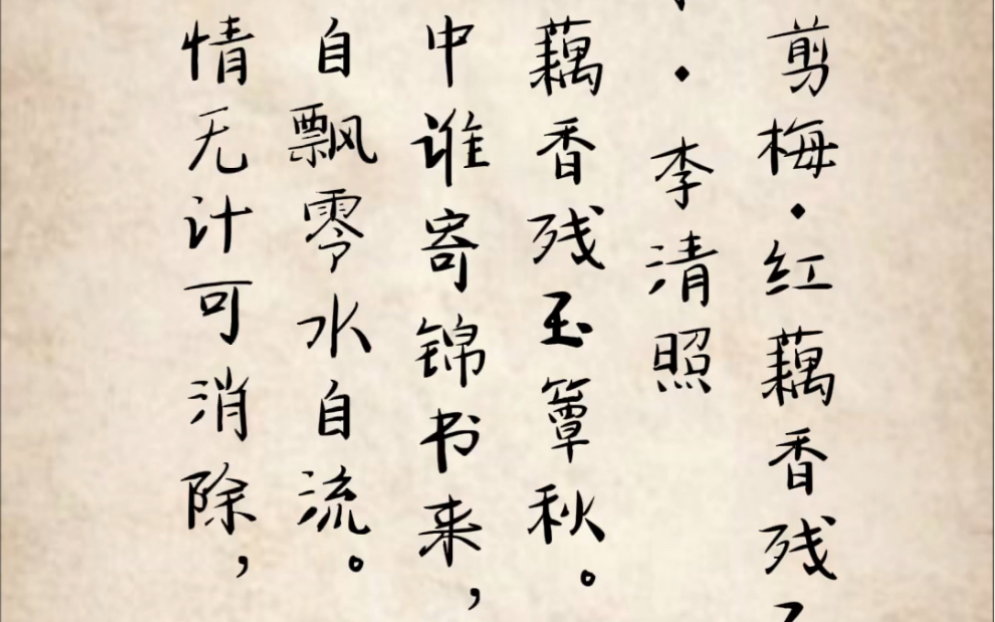 剪梅·红藕香残
·李清照
藕香残玉簟秋。
中谁寄锦书来，
自飘零水自流。
情无计可消除，